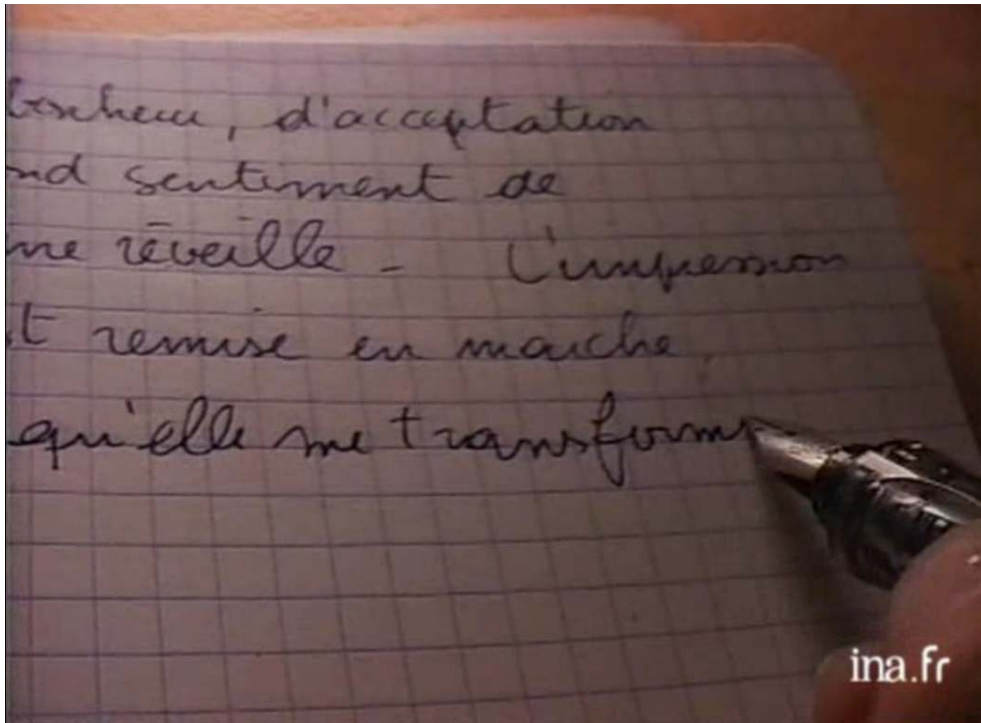 bonheur, d'acceptation
nd sentiment de
me réveille - L'impression
t remise en marche,
qu'elle me transforme
ina.fr